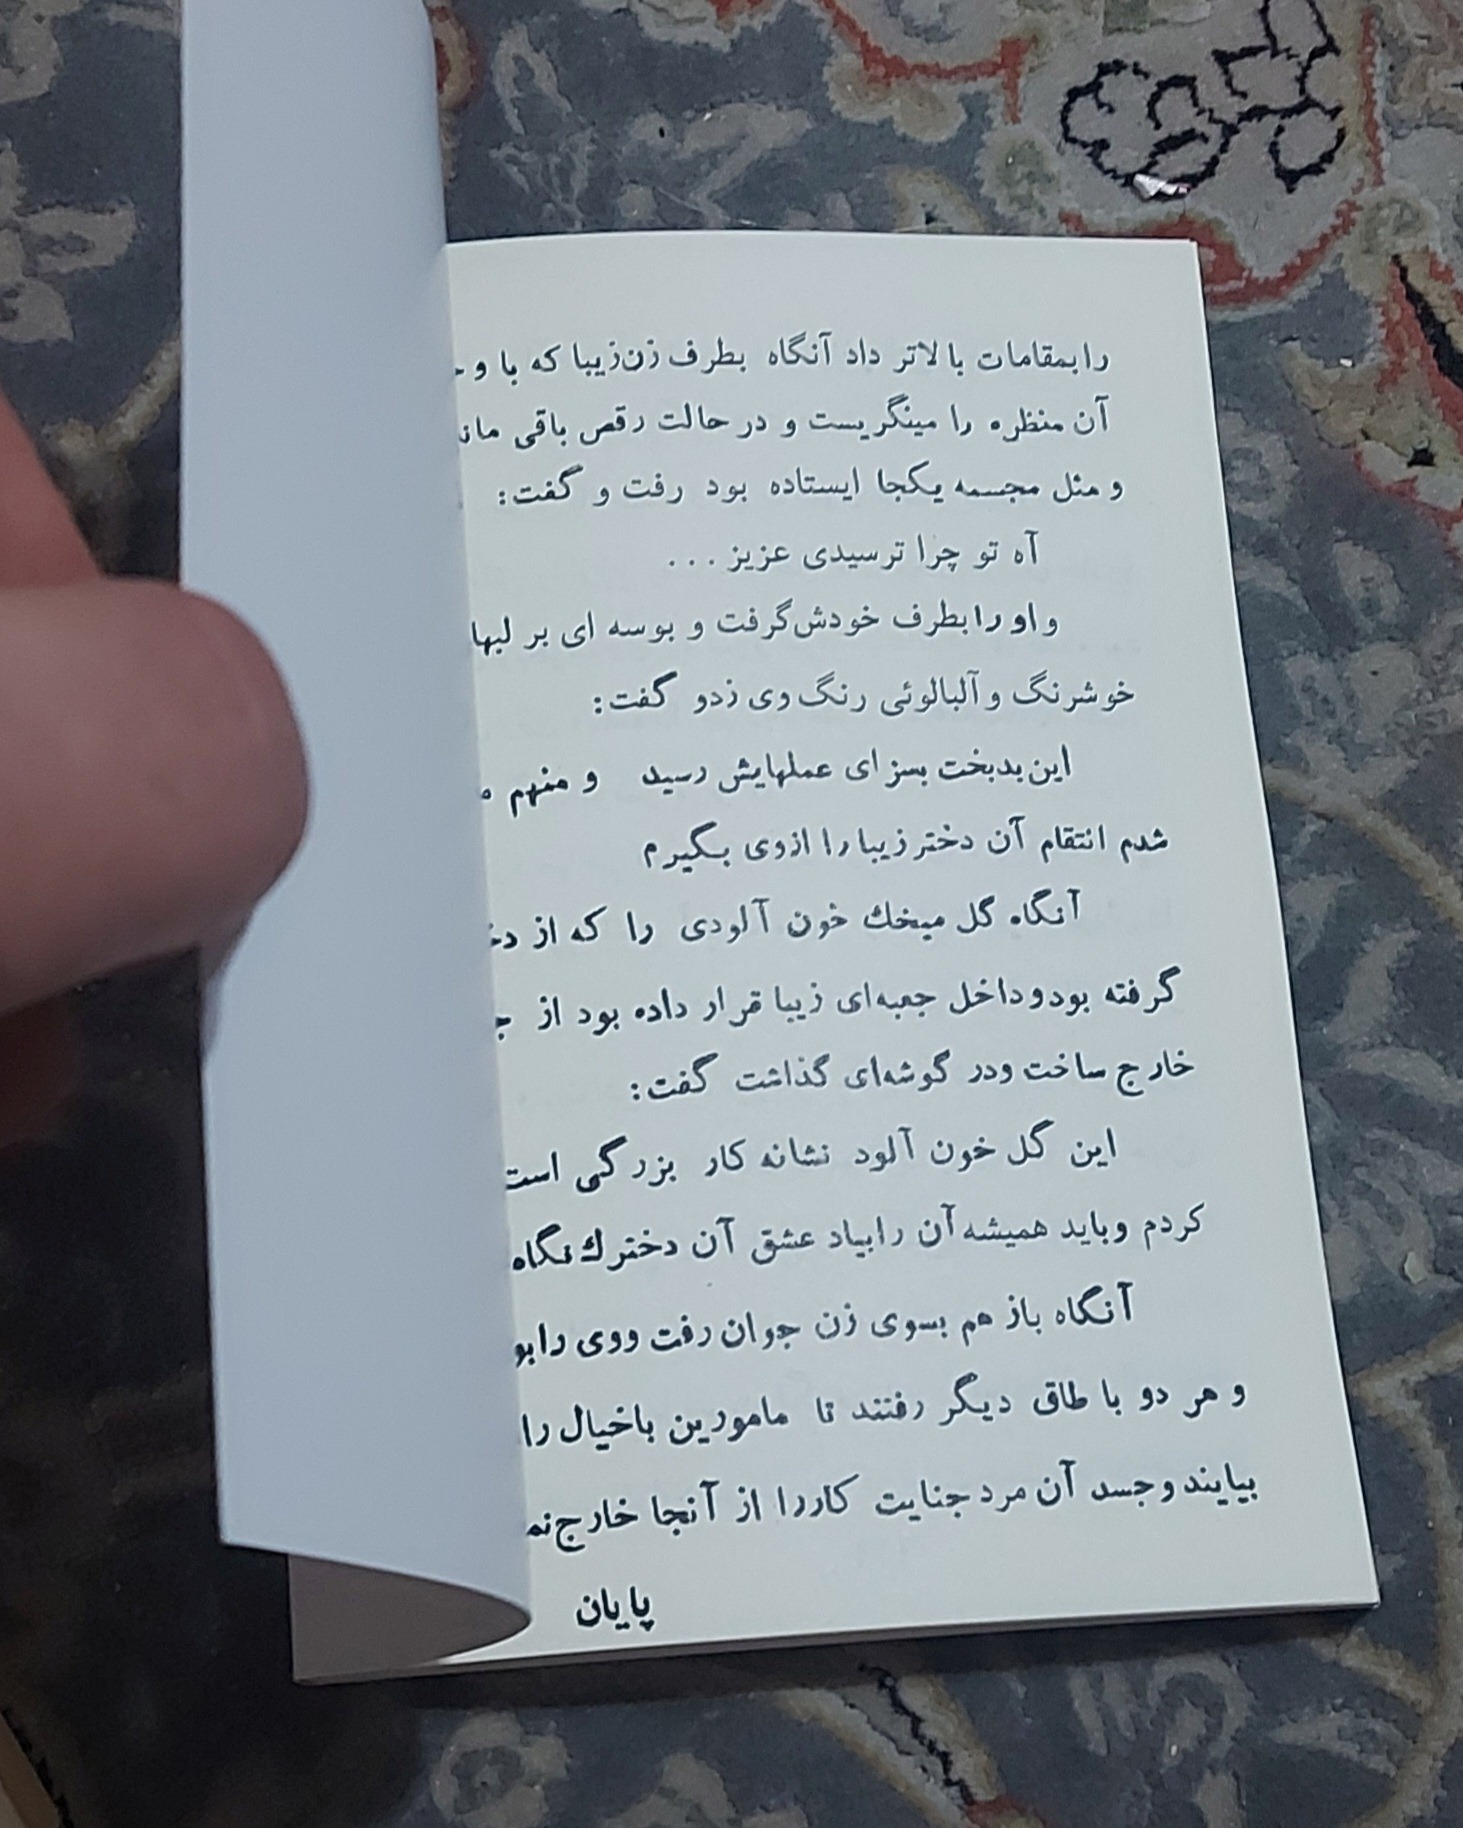 رابمقامات بالاتر داد آنگاه بطرف زن‌زیبا که با
آن منظره را مینگریست و در حالت رقص باقی
و مثل مجسمه یکجا ایستاده بود رفت و گفت:
آه تو چرا ترسیدی عزیز ...
و او را بطرف خودش گرفت و بوسه ای بر
خوشرنگ و آلبالوئی رنگ وی زدو گفت:
این بدبخت بسزای عملهایش رسید و منهم
شدم انتقام آن دختر زیبا را ازوی بگیرم
آنگاه گل میخك خون آلودی را که از
گرفته بودو داخل جعبه‌ای زیبا قرار داده بود از
خارج ساخت ودر گوشه‌ای گذاشت گفت:
این گل خون آلود نشانه کار بزرگی است
کردم وباید همیشه آن رابیاد عشق آن دخترك نگاه
آنگاه باز هم بسوی زن جوان رفت ووی را
و هر دو با طاق دیگر رفتند تا مامورین باخیال
بیایند وجسد آن مرد جنایت کاررا از آنجا خارج
پایان